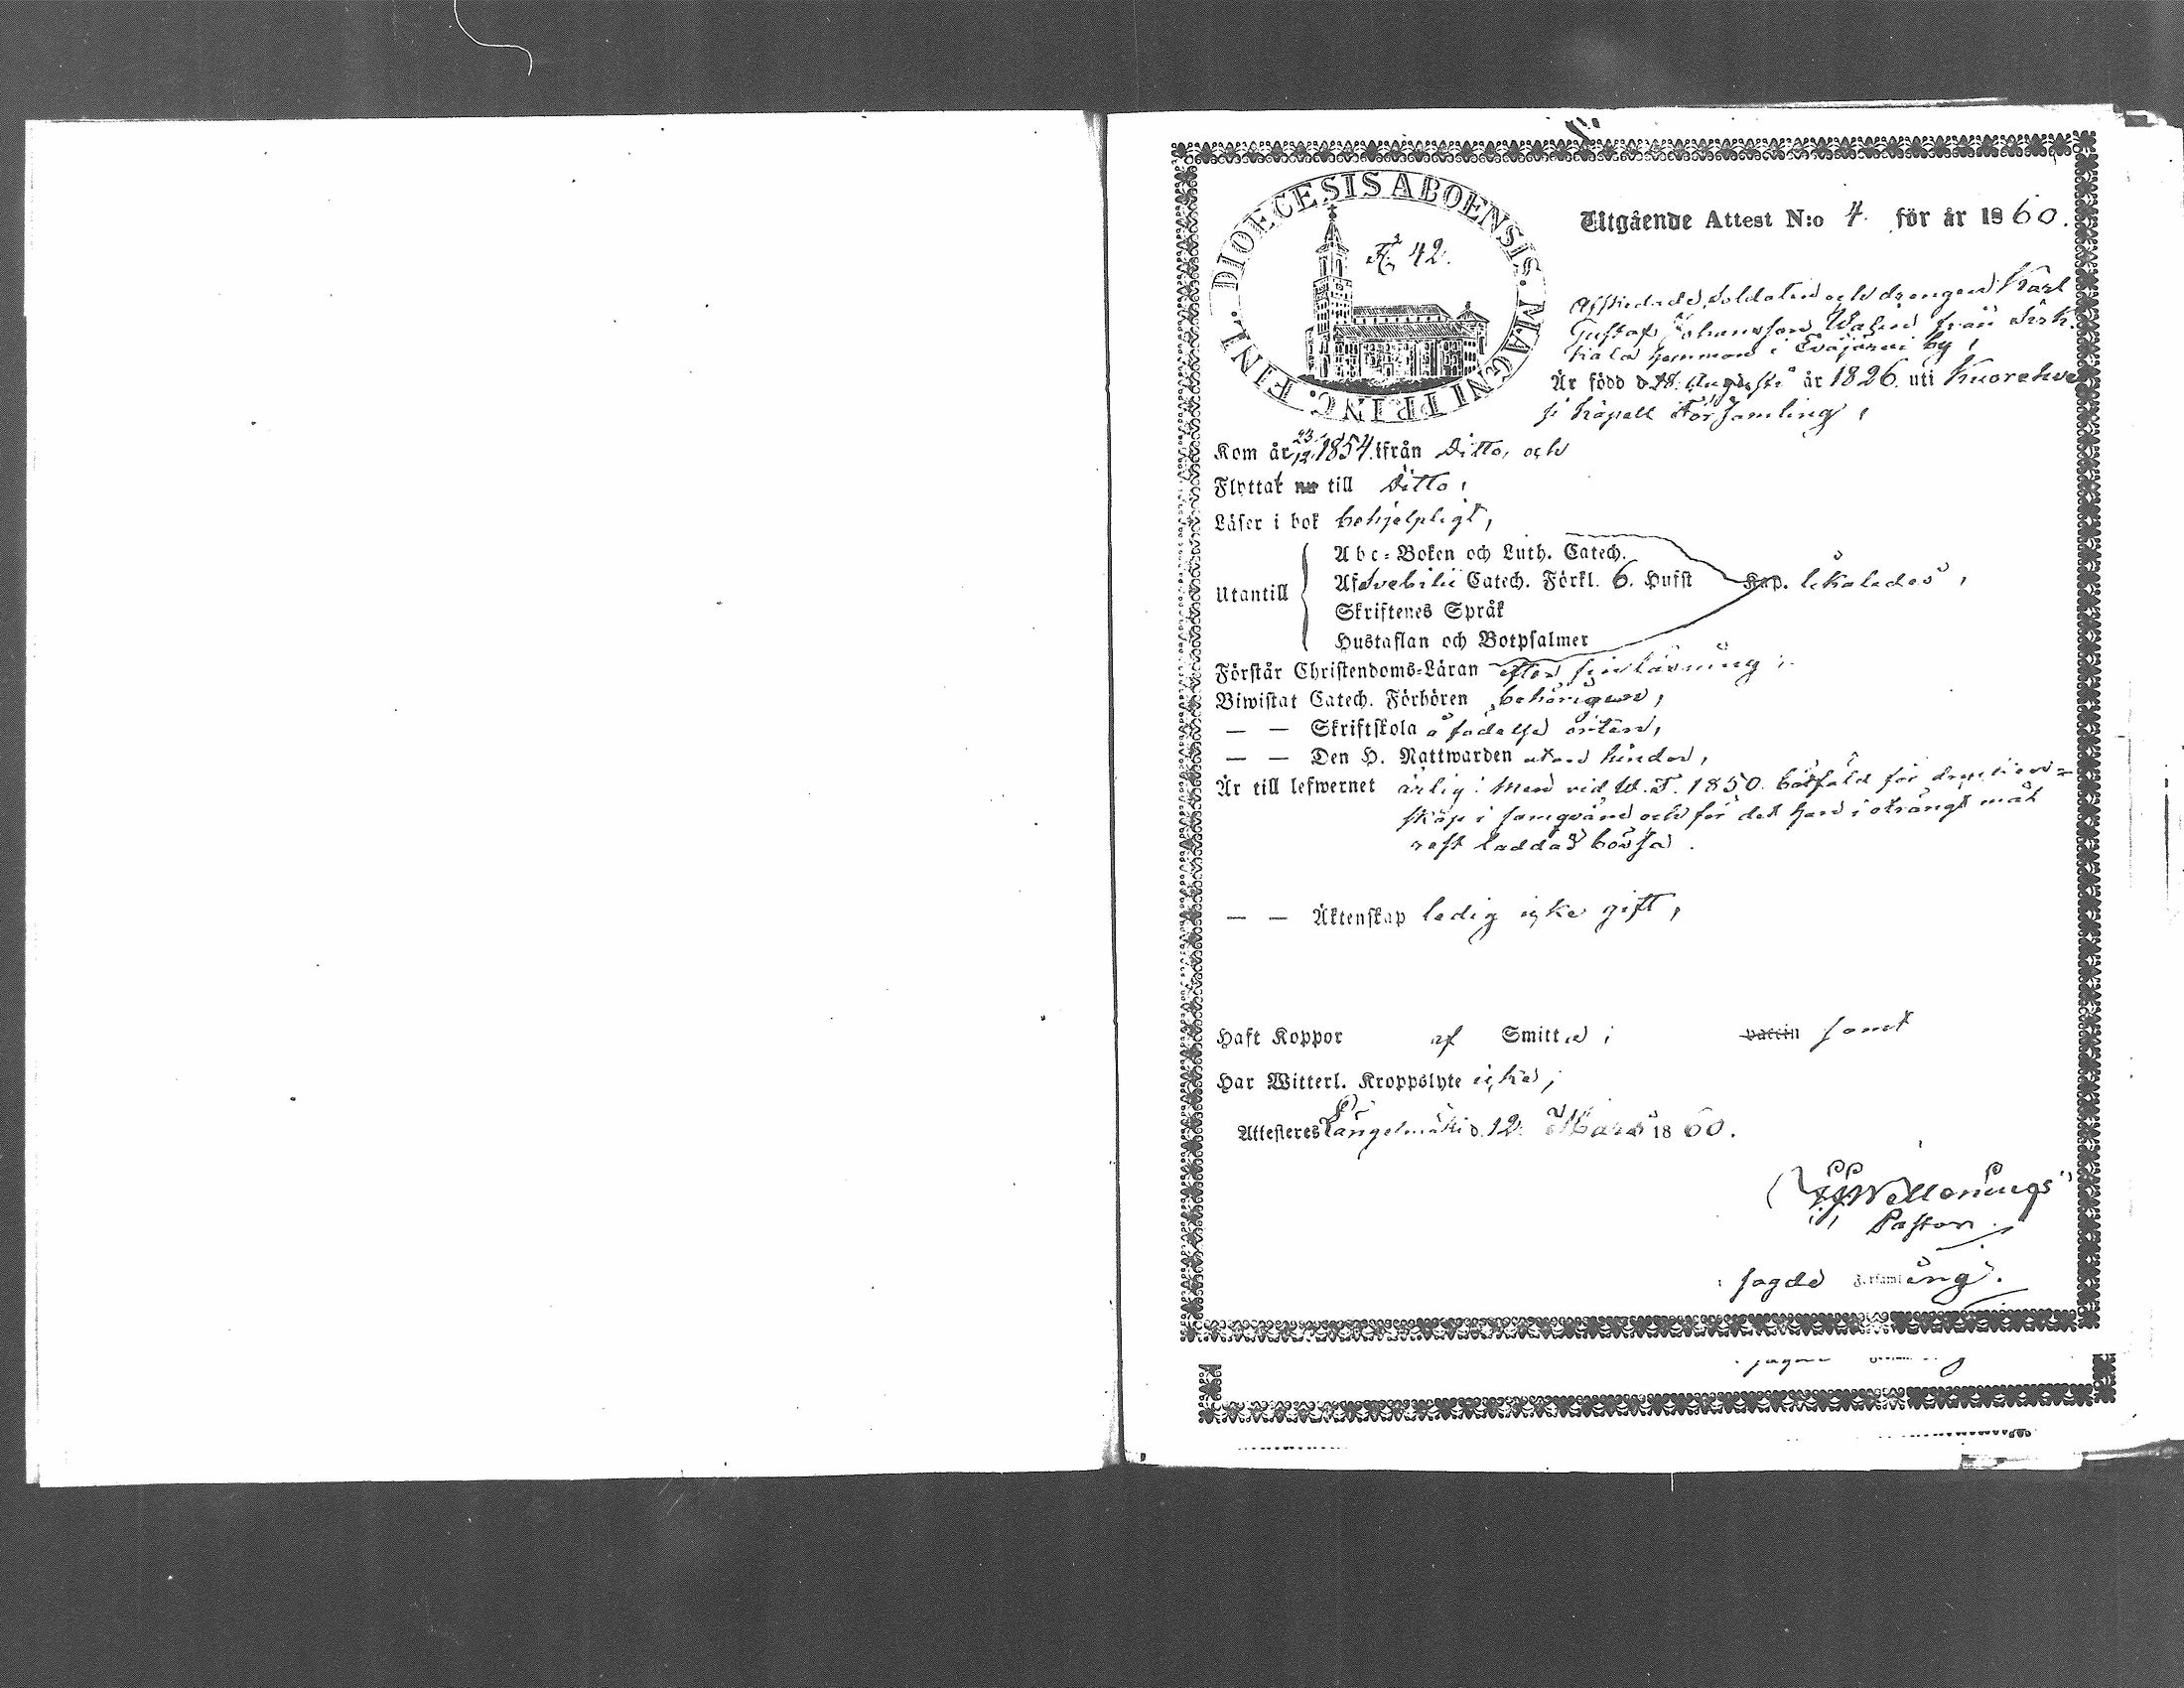 DIOECESIS ABOENSIS. MAGNI PRINC. FINL.
42.
Utgående Attest N:o 4. för år 1860.
Afskedade Soldaten och drengen Karl
Gustaf Johansson Walin från
hemman i Eväjärvi by,
Är född d. 28. Augusti år 1826. uti Kuorehve
si Kapell Församling,
Kom år 23/12 1854. ifrån Ditto, och
Flyttat nu till Ditto,
Läser i bok behjelpligt,
Utantill
Abc-Boken och Luth. Catech.
Af Svebilii Catech. Förkl. 6. Hufst Kap. likaledes,
Skriftenes Språk
Hustaflan och Botpsalmer
Förstår Christendoms-Läran efter sin läsning,
Biwistat Catech. Förhören behörigen,
— — Skriftskola å födelse orten,
— — Den H. Nattwarden utan hinder,
Är till lefwernet ärlig: Men vid W. T. 1850. bötfäld för drycken=
skap i samqväm och för det han i oträngt mål
rest laddad bössa.
— — Äktenskap ledig icke gift,
Haft Koppor af Smitta; vaccin samt
Har Witterl. Kroppslyte icke,
Attesteras Längelmäki d. 12. Mars 1860.
Pastor
i sagde Församling.